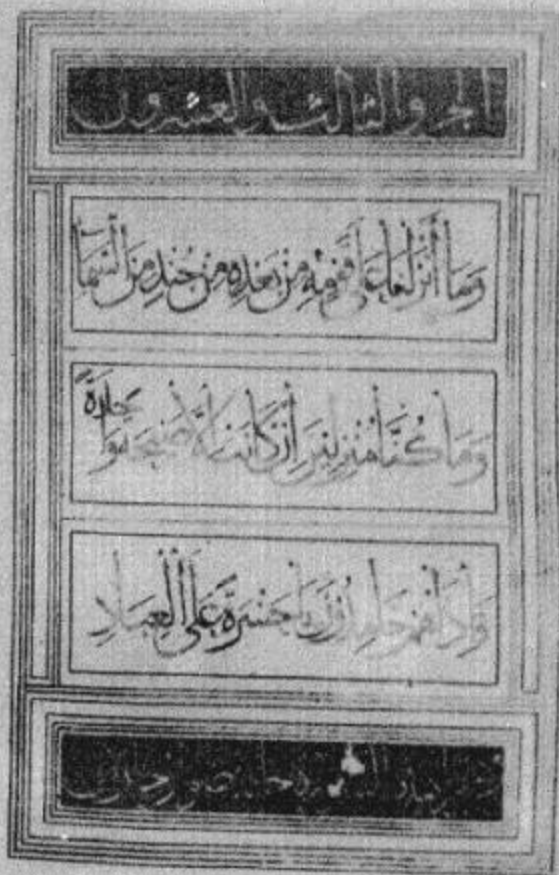 الجزو الثالث والعشرون
وَمَا أَنْزَلْنَا عَلَى قَوْمِهِ مِنْ بَعْدِهِ مِنْ جُنْدٍ مِنَ السَّمَا
وَمَا كُنَّا مُنْزِلِينَ إِنْ كَانَتْ إِلَّا صَيْحَةً وَاحِدَةً
فَإِذَا هُمْ خَامِدُونَ يَا حَسْرَةً عَلَى الْعِبَادِ